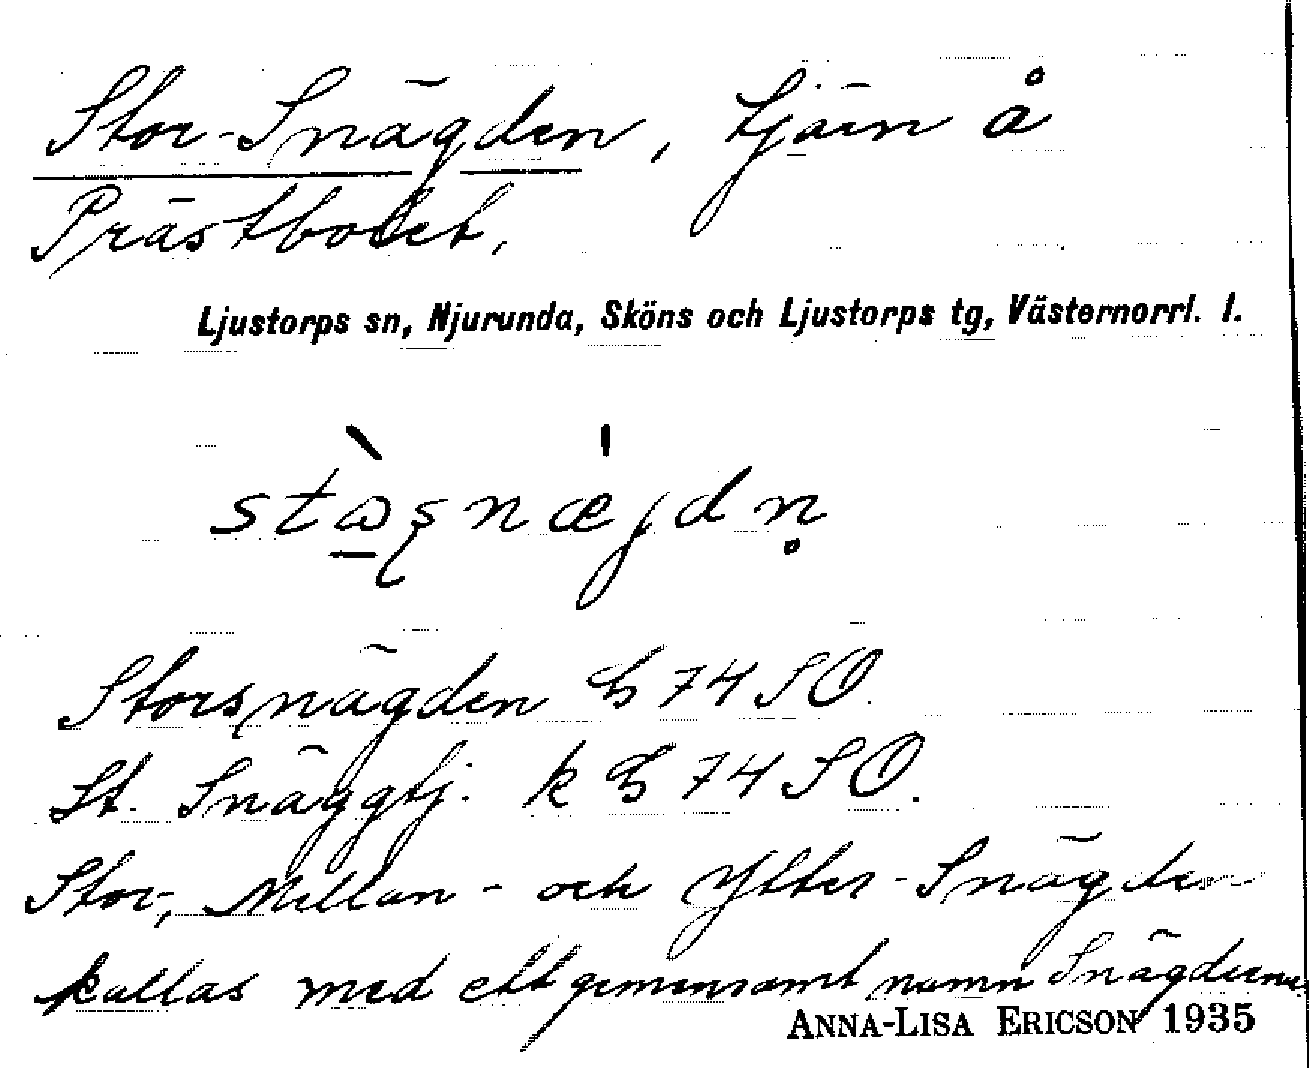 Stor-Snägden, tjärn å
Prästbolet,
Ljustorps sn, Njurunda, Sköns och Ljustorps tg, Västernorrl. l.
Storsnägden 74 SO.
St. Snäggtj. k 74 SO.
Stor-, Mellan- och Ytter-Snägden
kallas med ett gemensamt namn Snägderna.
ANNA-LISA ERICSON 1935